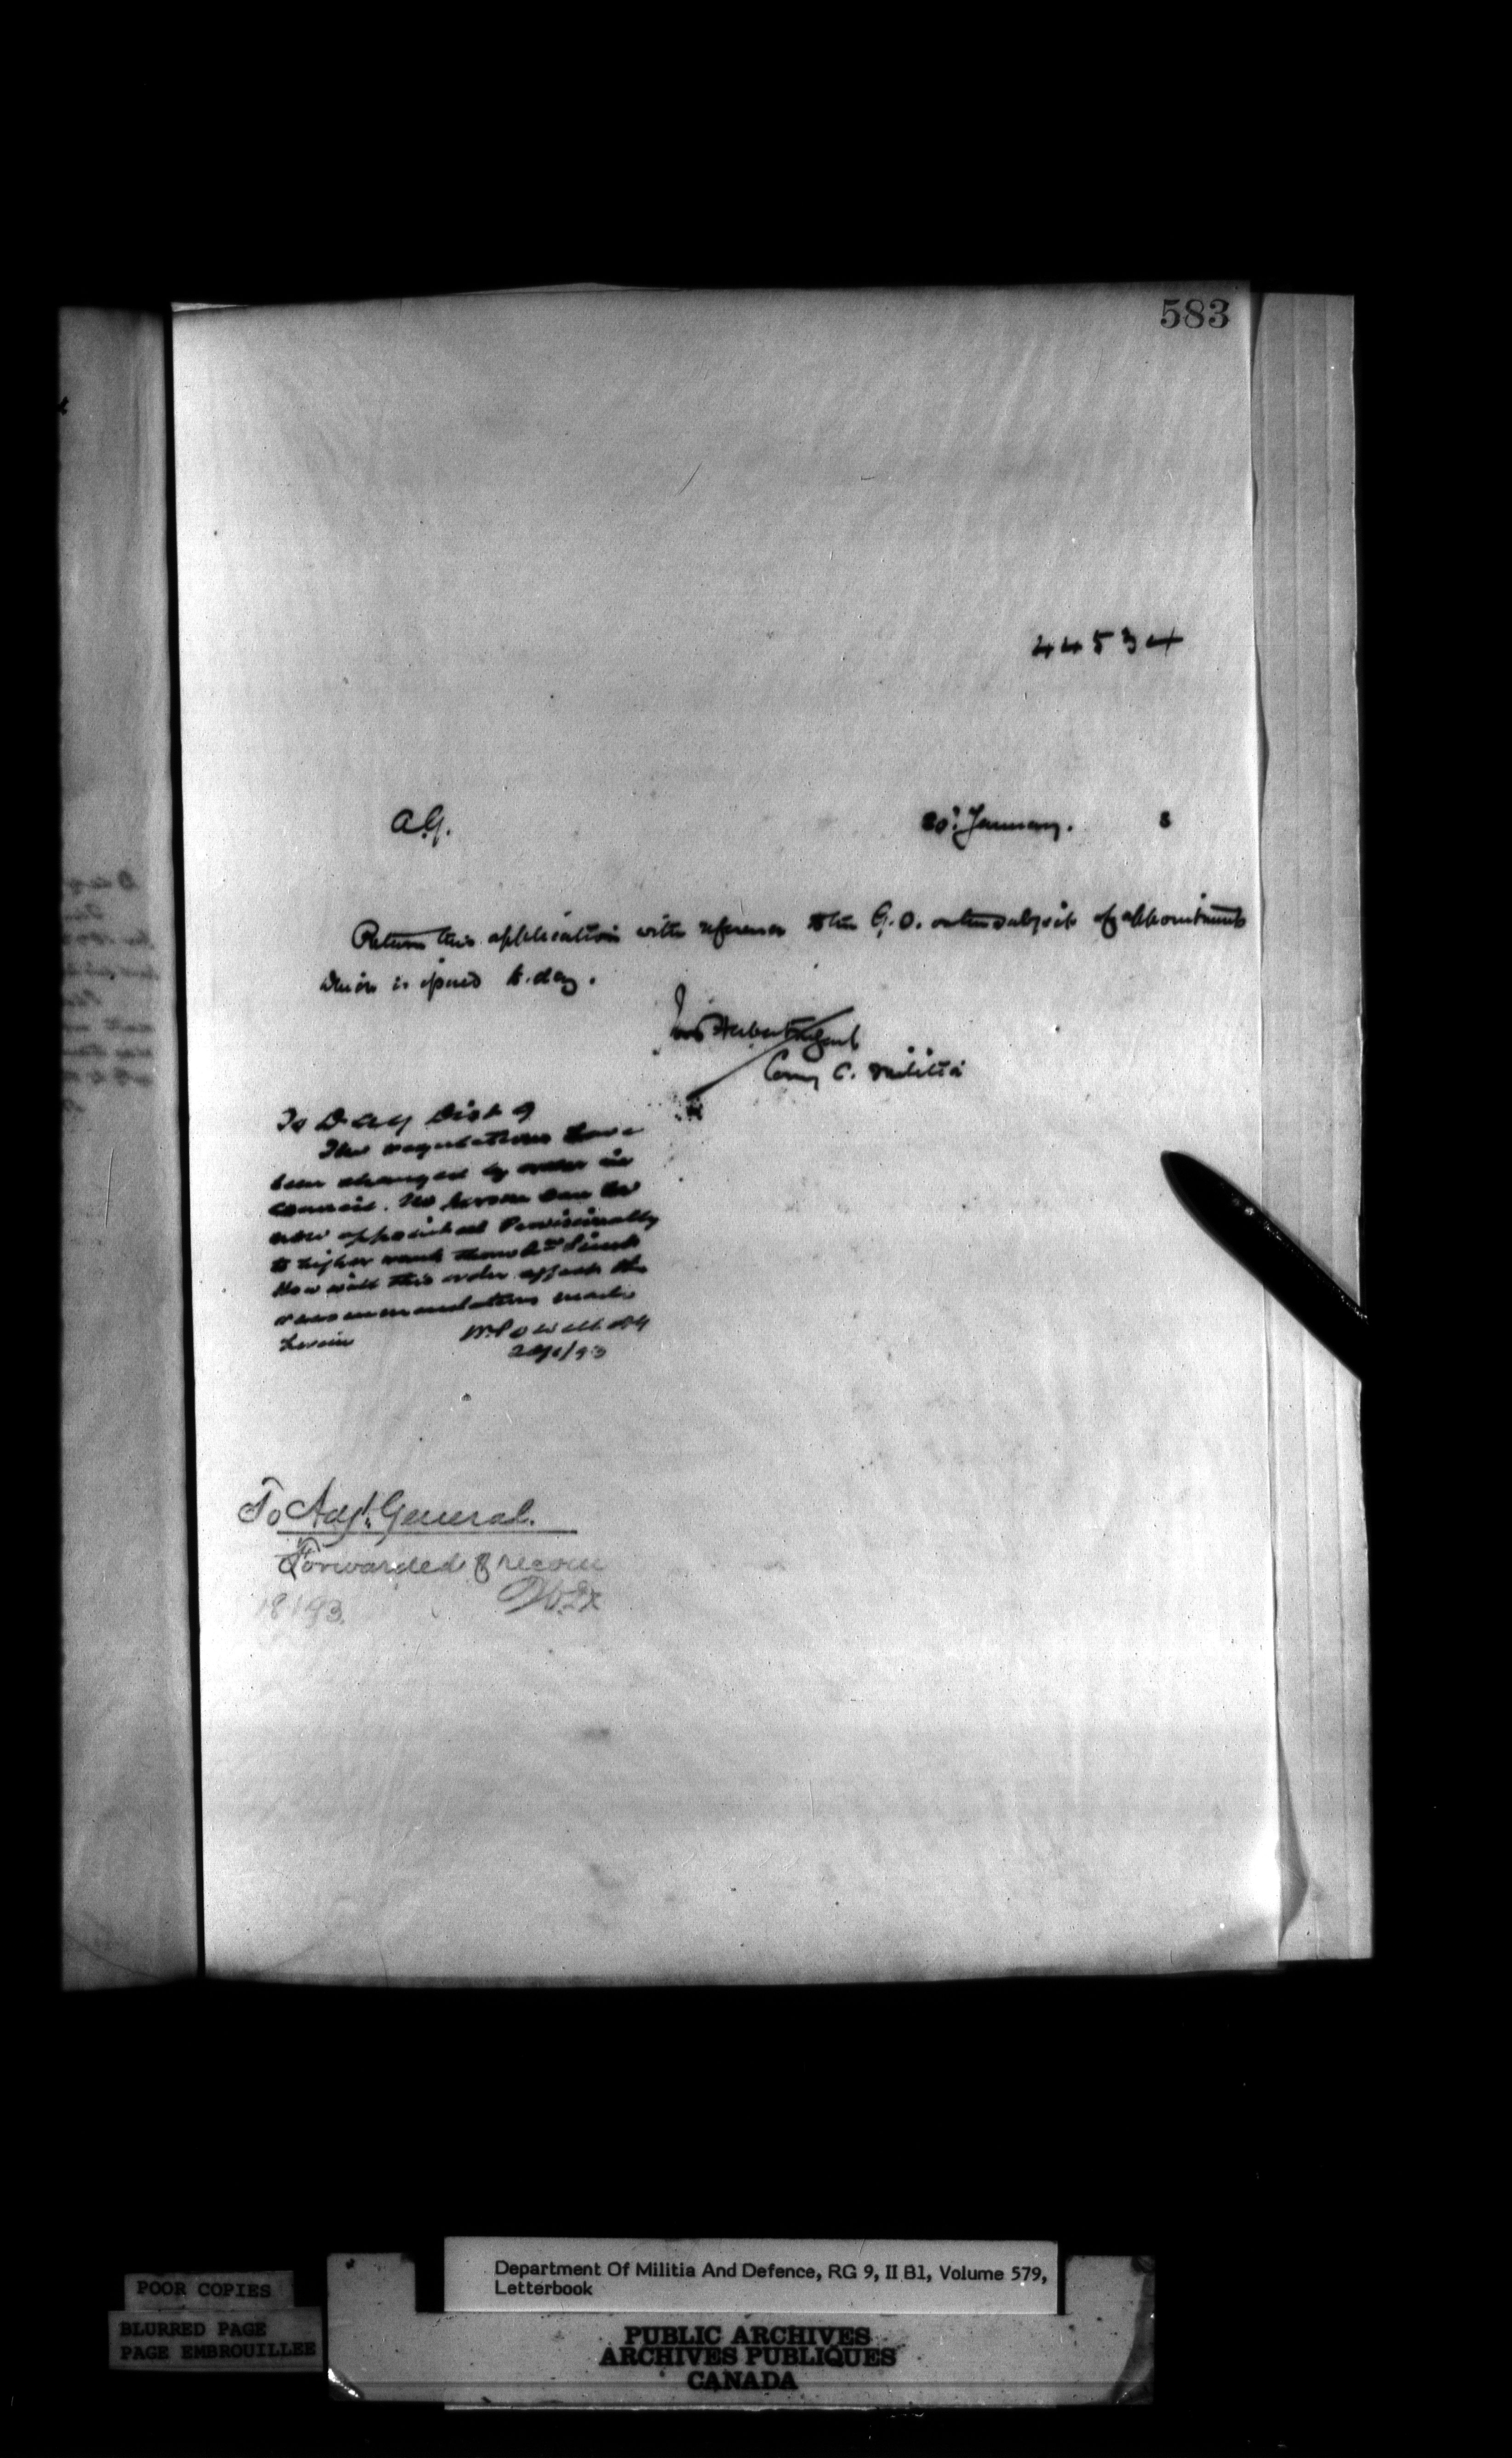 583
44534
A.G.
20th January. 3
Return this application with reference to the G.O. on the subject of appointments
which is issued to-day.
Ivor Herbert M. Genl
Comg C. Militia
To D A G Dist 9
The regulations have
been changed by order in
Council. No person can be
now appointed Provisionally
to higher rank than 2nd Lieut
How will this order affect the
recommendations made
herein
W. Powell AG
20/1/93
To Adjt. General.
Forwarded & recom
18/1/93.
Department Of Militia And Defence, RG 9, II B1, Volume 579,
Letterbook
POOR COPIES
BLURRED PAGE
PAGE EMBROUILLEE
PUBLIC ARCHIVES
ARCHIVES PUBLIQUES
CANADA